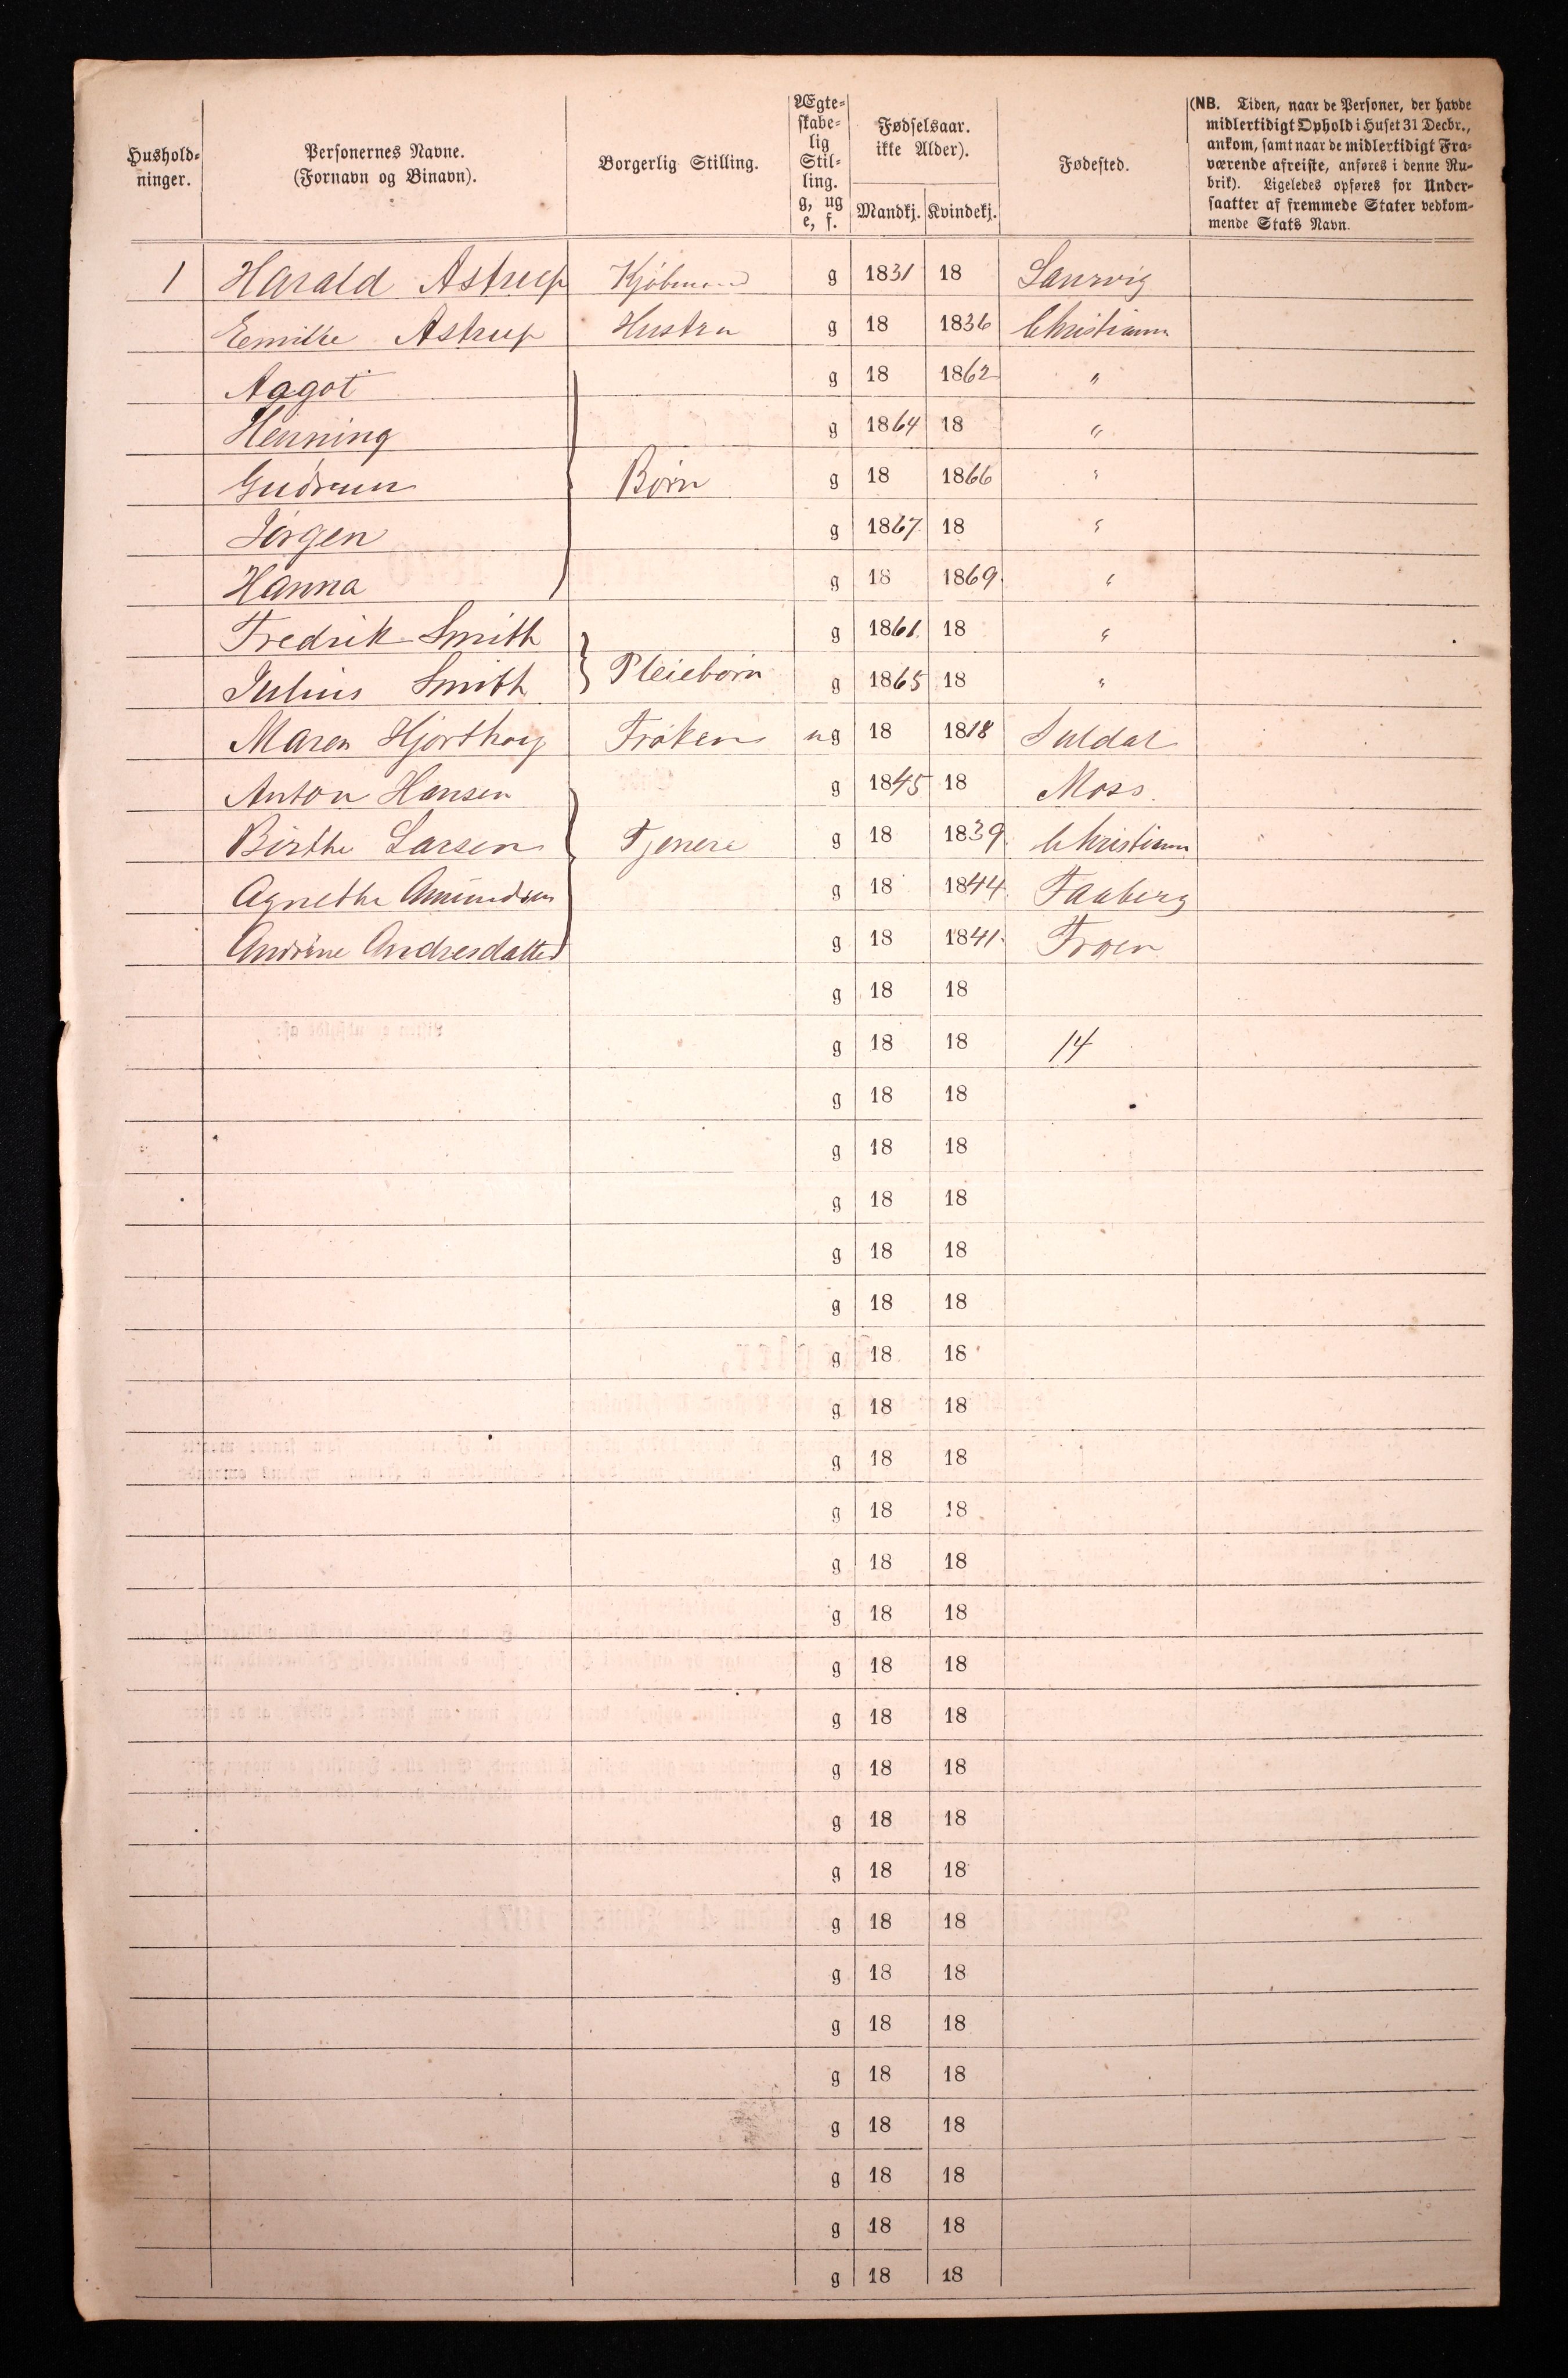 Hushold-
ninger.
Personernes Navne.
(Fornavn og Binavn).
Borgerlig Stilling.
Ægte-
skabe-
lig
Stil-
ling.
g, ug
e, f.
Fødselsaar.
ikke Alder).
Mandkj. Kvindekj.
Fødested.
(NB. Tiden, naar de Personer, der havde
midlertidigt Ophold i Huset 31 Decbr.,
ankom, samt naar de midlertidigt Fra-
værende afreiste, anføres i denne Ru-
brik). Ligeledes opføres for Under-
saatter af fremmede Stater vedkom-
mende Stats Navn.
1 Harald Astrup Kjöbmand g 1831 18 Laurvig
Emilie Astrup Hustru g 18 1836 Christiania
Aagot g 18 1862 "
Henning g 1864 18 "
Gudrun Børn g 18 1866 "
Jørgen g 1867 18 "
Hanna g 18 1869 "
Fredrik Smith g 1861 18 "
Julius Smith Pleiebørn g 1865 18 "
Maren Hjorthøy Frøken ug 18 1818 Suldal
Anton Hansen g 1845 18 Moss
Birthe Larsen Tjenere g 18 1839 Christiania
Agnethe Amundsen g 18 1844 Faaberg
Andrine Andresdatter g 18 1841 Froen
g 18 18
g 18 18 14
g 18 18
g 18 18
g 18 18
g 18 18
g 18 18
g 18 18
g 18 18
g 18 18
g 18 18
g 18 18
g 18 18
g 18 18
g 18 18
g 18 18
g 18 18
g 18 18
g 18 18
g 18 18
g 18 18
g 18 18
g 18 18
g 18 18
g 18 18
g 18 18